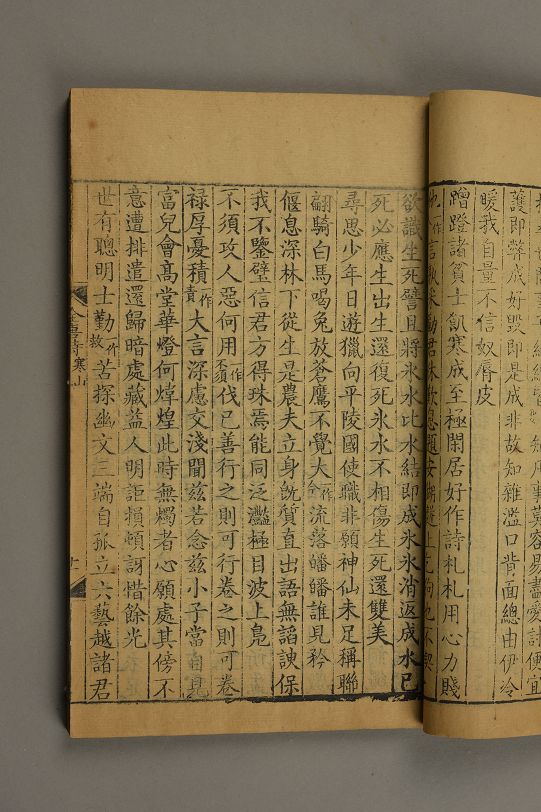 護即弊成好毀即是成非故知雜濫口背面總由伊冷
暖我自量不信奴脣皮
蹭蹬諸貧士飢寒成至極閑居好作詩札札用心力賤
欲識生死譬且將氷水比水結即成氷氷消返成水已
死必應生出生還復死氷水不相傷生死還雙美
尋思少年日遊獵向平陵國使職非願神仙未足稱聯
翩騎白馬喝兔放蒼鷹不覺大一作今流落皤皤誰見矜
偃息深林下從生是農夫立身旣質直出語無諂諛保
我不鑒璧信君方得珠焉能同泛灩極目波上鳧
不須攻人惡何用一作不須伐已善行之則可行卷之則可卷
祿厚憂積一作責大言深慮交淺聞兹若念兹小子當自見
富兒會高堂華燈何煒煌此時無燭者心願處其傍不
意遭排遣還歸暗處藏益人明詎損頓訝惜餘光
世有聰明士勤一作敎苦探幽文三端自孤立六藝越諸君
全唐詩 寒山